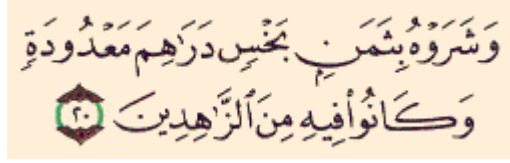 وَشَرَوْهُ بِثَمَنٍۭ بَخْسٍ دَرَٰهِمَ مَعْدُودَةٍ
وَكَانُوا۟ فِيهِ مِنَ ٱلزَّٰهِدِينَ ٢٠